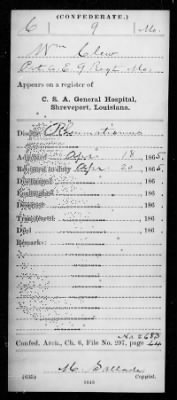 (CONFEDERATE.)
C 9 Mo.
Wm Clew
Pvt. Co. E. 9 Regt. Mo.
Appears on a register of
C. S. A. General Hospital,
Shreveport, Louisiana.
Disease Rheumatismus
Admitted Apr 18, 1865
Returned to duty Apr. 20, 1865
Deserted , 186
Discharged , 186
Furloughed , 186
Transferred , 186
Died , 186
Remarks:
No 2683
Confed. Arch., Ch. 6, File No. 297, page 24
(635) Copyist.